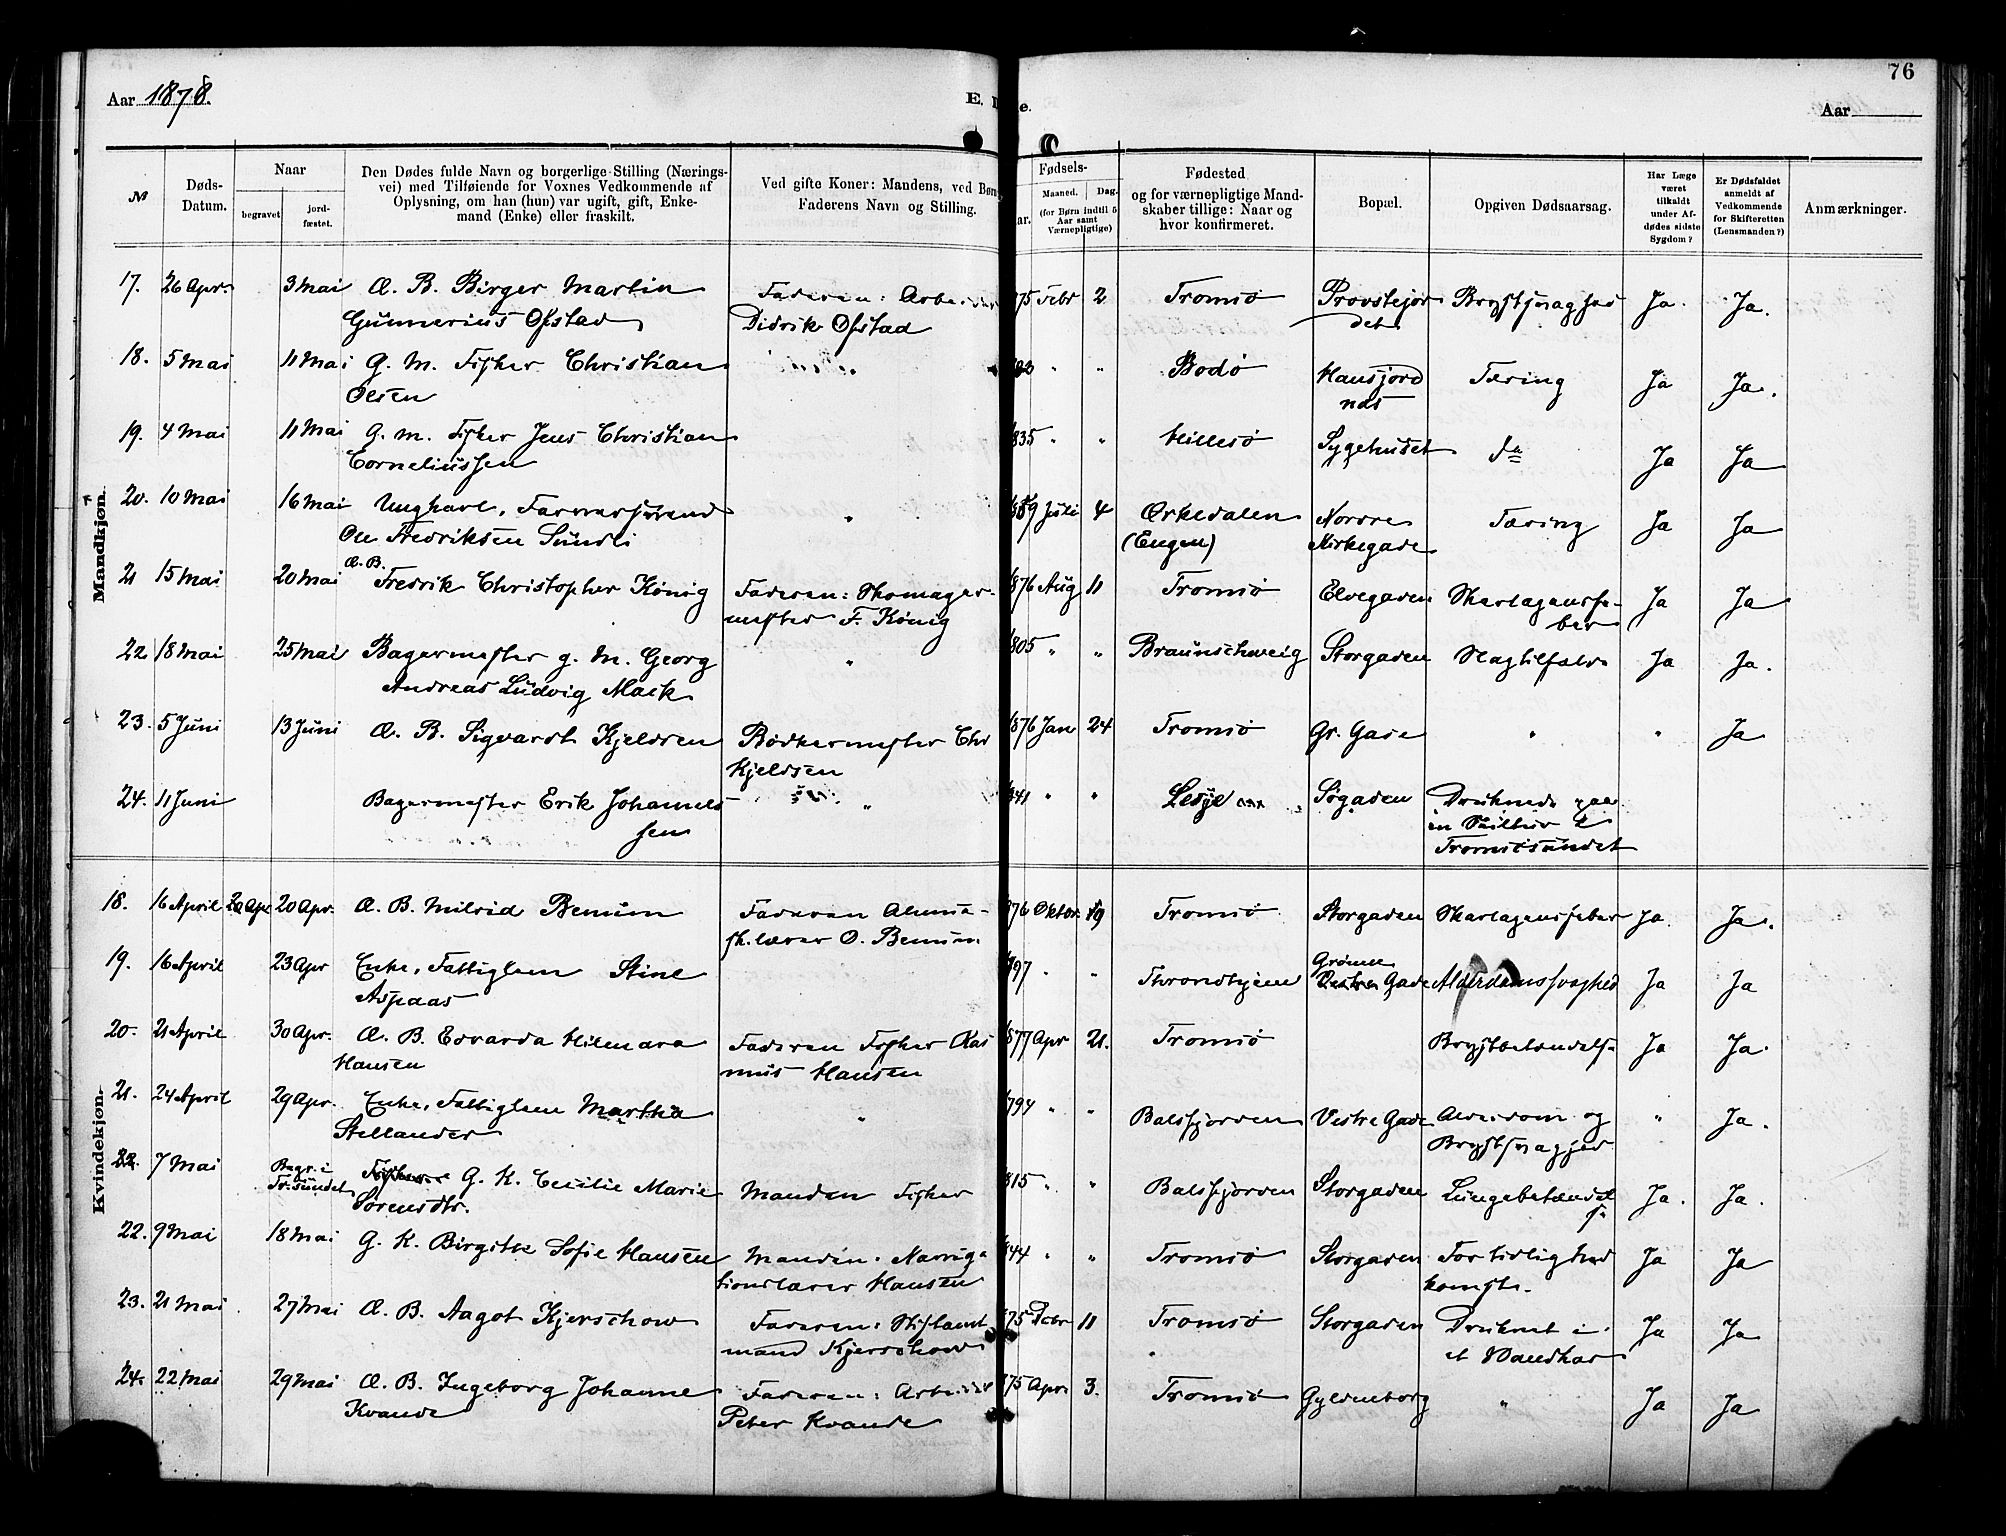 76
Aar 1878.
E. D
e.
Aar
№
Døds-
Datum.
Naar
begravet
jord-
fæstet.
Den Dødes fulde Navn og borgerlige Stilling (Nærings-
vei) med Tilføiende for Voxnes Vedkommende af
Oplysning, om han (hun) var ugift, gift, Enke-
mand (Enke) eller fraskilt.
Ved gifte Koner: Mandens, ved Børn
Faderens Navn og Stilling.
Fødsels-
ar.
Maaned.
Dag.
(for Børn indtil 5
Aar samt
Værnepligtige)
Fødested
og for værnepligtige Mand-
skaber tillige: Naar og
hvor konfirmeret.
Bopæl.
Opgiven Dødsaarsag.
Har Læge
været
tilkaldt
under Af-
dødes sidste
Sygdom?
Er Dødsfaldet
anmeldt af
Vedkommende
for Skifteretten
(Lensmanden?)
Anmærkninger.
Mandkjøn.
17. 26 Apr. 3 Mai Æ. B. Birger Martin Faderen: Arbeider 875 Febr 2 Tromsø Provstejor Brystsvaghed Ja. Ja.
Gunnerius Ofstad Didrik Ofstad det
18. 5 Mai 11 Mai G. M. Fisker Christian " " " Bodø Hansjord Tæring Ja Ja.
Olsen nds
19. 4 Mai 11 Mai G. M. Fisker Jens Christian 835 " " Hillesø Sygehuset do Ja Ja
Corneliussen
20. 10 Mai 16 Mai Ungkarl, Farversvend " Juli 4 Ørkedalen Nordre Tæring Ja Ja
Ole Fredriksen Sundli (Engen) Kirkegade
21 15 Mai 20 Mai Æ. B. Fredrik Christopher König Faderen: Skomager- 876 Aug 11 Tromsø Elvegaden Skarlagensfe- Ja Ja
mester F. König ber
22 18 Mai 25 Mai Bagermester g. M. Georg " 805 " " Braunschweig Storgaden Slagtilfælde Ja Ja.
Andreas Ludvig Mack
23. 5 Juni 13 Juni Æ. B. Sigvardt Kjeldsen Bødkermester Chr 876 Jan 24 Tromsø Gr. Gade " " Ja
Kjeldsen
24. 11 Juni Bagermester Erik Johannes- " 841 " " Lesje Søgaden Druknede paa
sen en Seiltur i
Tromsøsundet
Kvindekjøn.
18. 16 April 20 Apr 20 Apr. Æ. B. Milrid Bemum Faderen Almue- 876 Oktbr. 19 Tromsø Storgaden Skarlagensfeber Ja. Ja.
sk.lærer O. Bemum.
19. 16 April 23 Apr Enke, Fattiglem Stine 797 " " Throndhjem Grønne Gade Alderdomssvaghed Ja Ja
Aspaas
20. 21 April 30 Apr. Æ. B. Edvarda Hilmara Faderen Fisker Ras 877 Apr 21. Tromsø Brystbetændelse Ja Ja.
Hansen mus Hansen
21. 24 April 29 Apr. Enke, Fattiglem Martha " 794 " " Balsfjorden Vestre Gade Alderdom og " Ja.
Stellander Brystsvaghed
22. 7 Mai Begr. i G. K. Cecilie Marie Manden Fisker 815 " " Balsfjorden Storgaden Lungebetændel Ja. Ja.
Tr.sundet Sørensdtr. se
22. 9 Mai 18 Mai G. K. Birgitte Sofie Hansen Manden: Naviga 844 " " Tromsø Storgaden For tidlig Ned Ja Ja
tionslærer Hansen komst.
23. 21 Mai 27 Mai Æ. B. Aagot Kjerschow Faderen: Stiftamt 875 11 Tromsø Storgaden Druknet i Ja Ja
mand Kjerschow et Vandkar
24. 22 Mai 29 Mai Æ. B. Ingeborg Johanne Faderen: Arbeider 875 Apr. 3. Tromsø Gyldenborg " Ja Ja
Kvande Peter Kvande